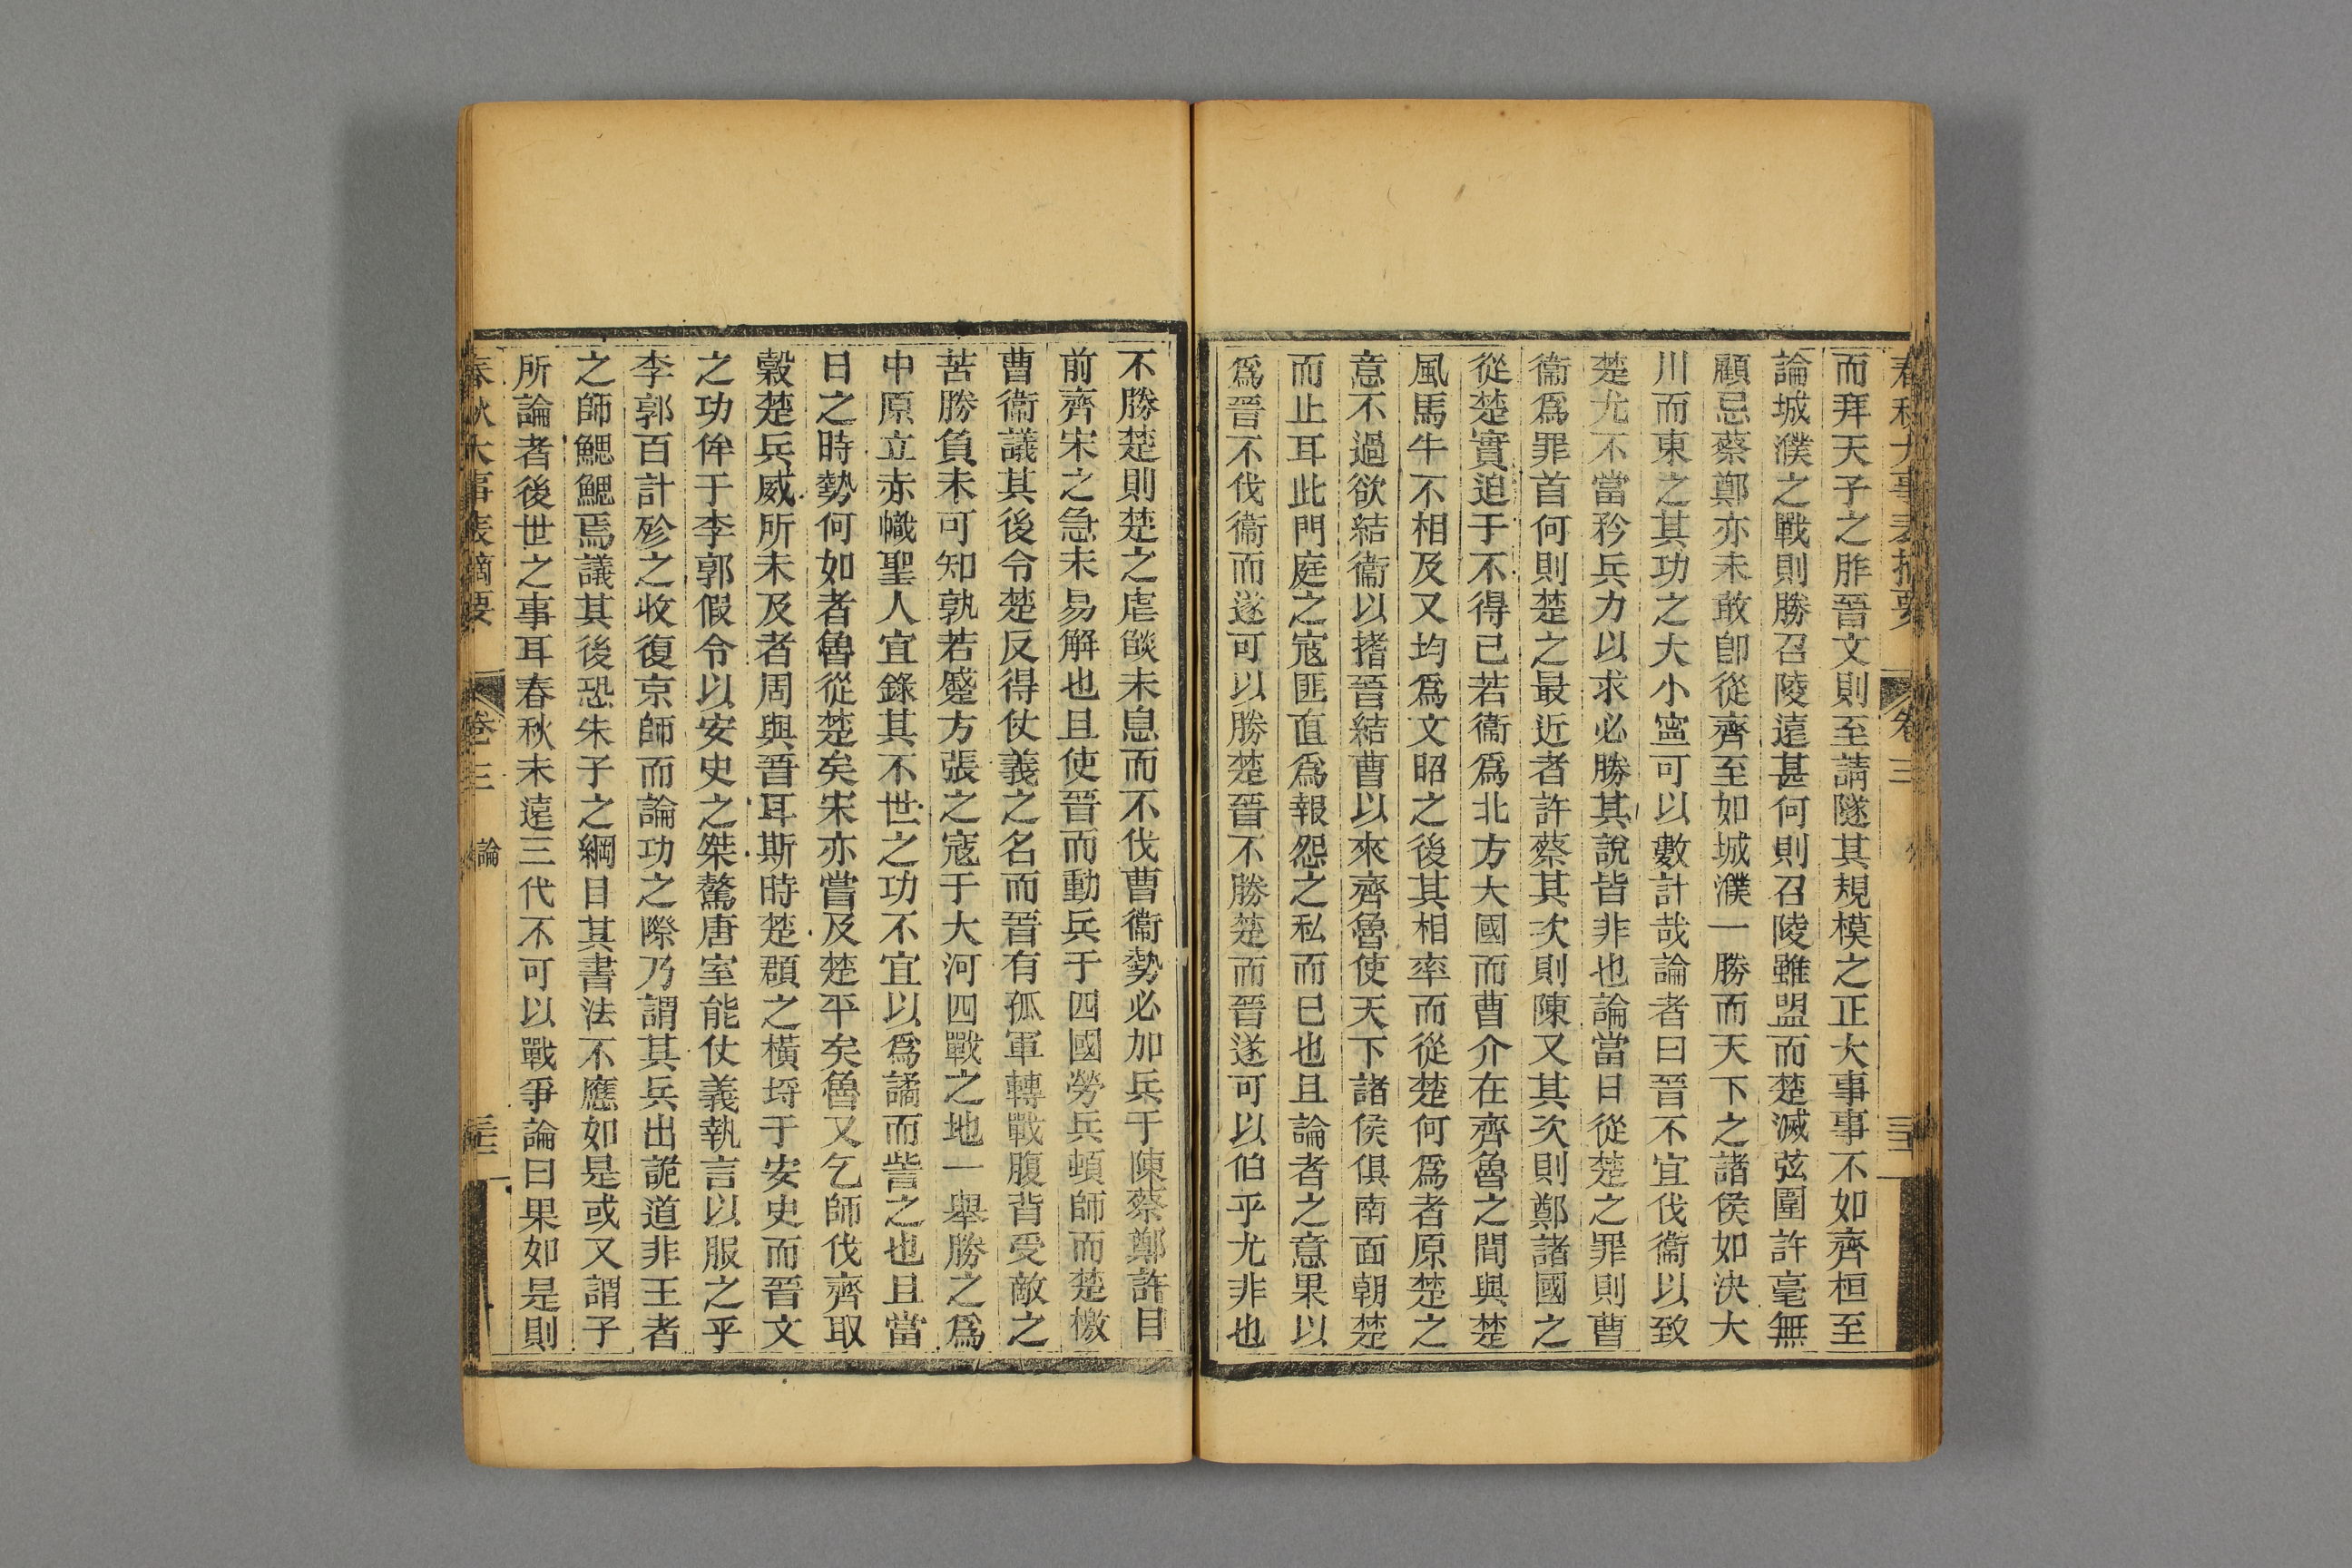 春秋大事表摘要 卷三 三十
而拜天子之胙晉文則至請隧其規模之正大事事不如齊桓至
論城濮之戰則勝召陵遠甚何則召陵雖盟而楚滅弦圍許毫無
顧忌蔡鄭亦未敢卽從齊至如城濮一勝而天下之諸侯如決大
川而東之其功之大小寧可以數計哉論者曰晉不宜伐衞以致
楚尤不當矜兵力以求必勝其說皆非也論當日從楚之罪則曹
衞爲罪首何則楚之最近者許蔡其次則陳又其次則鄭諸國之
從楚實迫于不得已若衞爲北方大國而曹介在齊魯之間與楚
風馬牛不相及又均爲文昭之後其相率而從楚何爲者原楚之
意不過欲結衞以搘晉結曹以來齊魯使天下諸侯俱南面朝楚
而止耳此門庭之寇匪直爲報怨之私而已也且論者之意果以
爲晉不伐衞而遂可以勝楚晉不勝楚而晉遂可以伯乎尤非也
不勝楚則楚之虐燄未息而不伐曹衞勢必加兵于陳蔡鄭許目
前齊宋之急未易解也且使晉而動兵于四國勞兵頓師而楚檄
曹衞議其後令楚反得仗義之名而晉有孤軍轉戰腹背受敵之
苦勝負未可知孰若蹙方張之寇于大河四戰之地一舉勝之爲
中原立赤幟聖人宜錄其不世之功不宜以爲譎而訾之也且當
日之時勢何如者魯從楚矣宋亦嘗及楚平矣魯又乞師伐齊取
穀楚兵威所未及者周與晉耳斯時楚頵之橫埒于安史而晉文
之功侔于李郭假令以安史之桀驁唐室能仗義執言以服之乎
李郭百計殄之收復京師而論功之際乃謂其兵出詭道非王者
之師鰓鰓焉議其後恐朱子之綱目其書法不應如是或又謂子
所論者後世之事耳春秋未遠三代不可以戰爭論曰果如是則
春秋大事表摘要 卷三 論